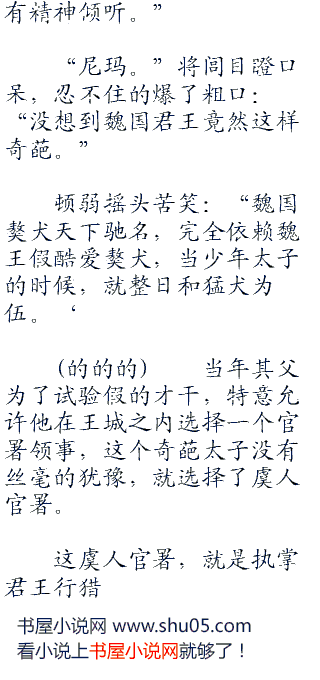 有精神倾听。”
“尼玛。”将闾目瞪口
呆，忍不住的爆了粗口：
“没想到魏国君王竟然这样
奇葩。”
顿弱摇头苦笑：“魏国
獒犬天下驰名，完全依赖魏
王假酷爱獒犬，当少年太子
的时候，就整日和猛犬为
伍。‘
(的的的)　　当年其父
为了试验假的才干，特意允
许他在王城之内选择一个官
署领事，这个奇葩太子没有
丝毫的犹豫，就选择了虞人
官署。
这虞人官署，就是执掌
君王行猎
书屋小说网 www.shu05.com
看小说上书屋小说网就够了！